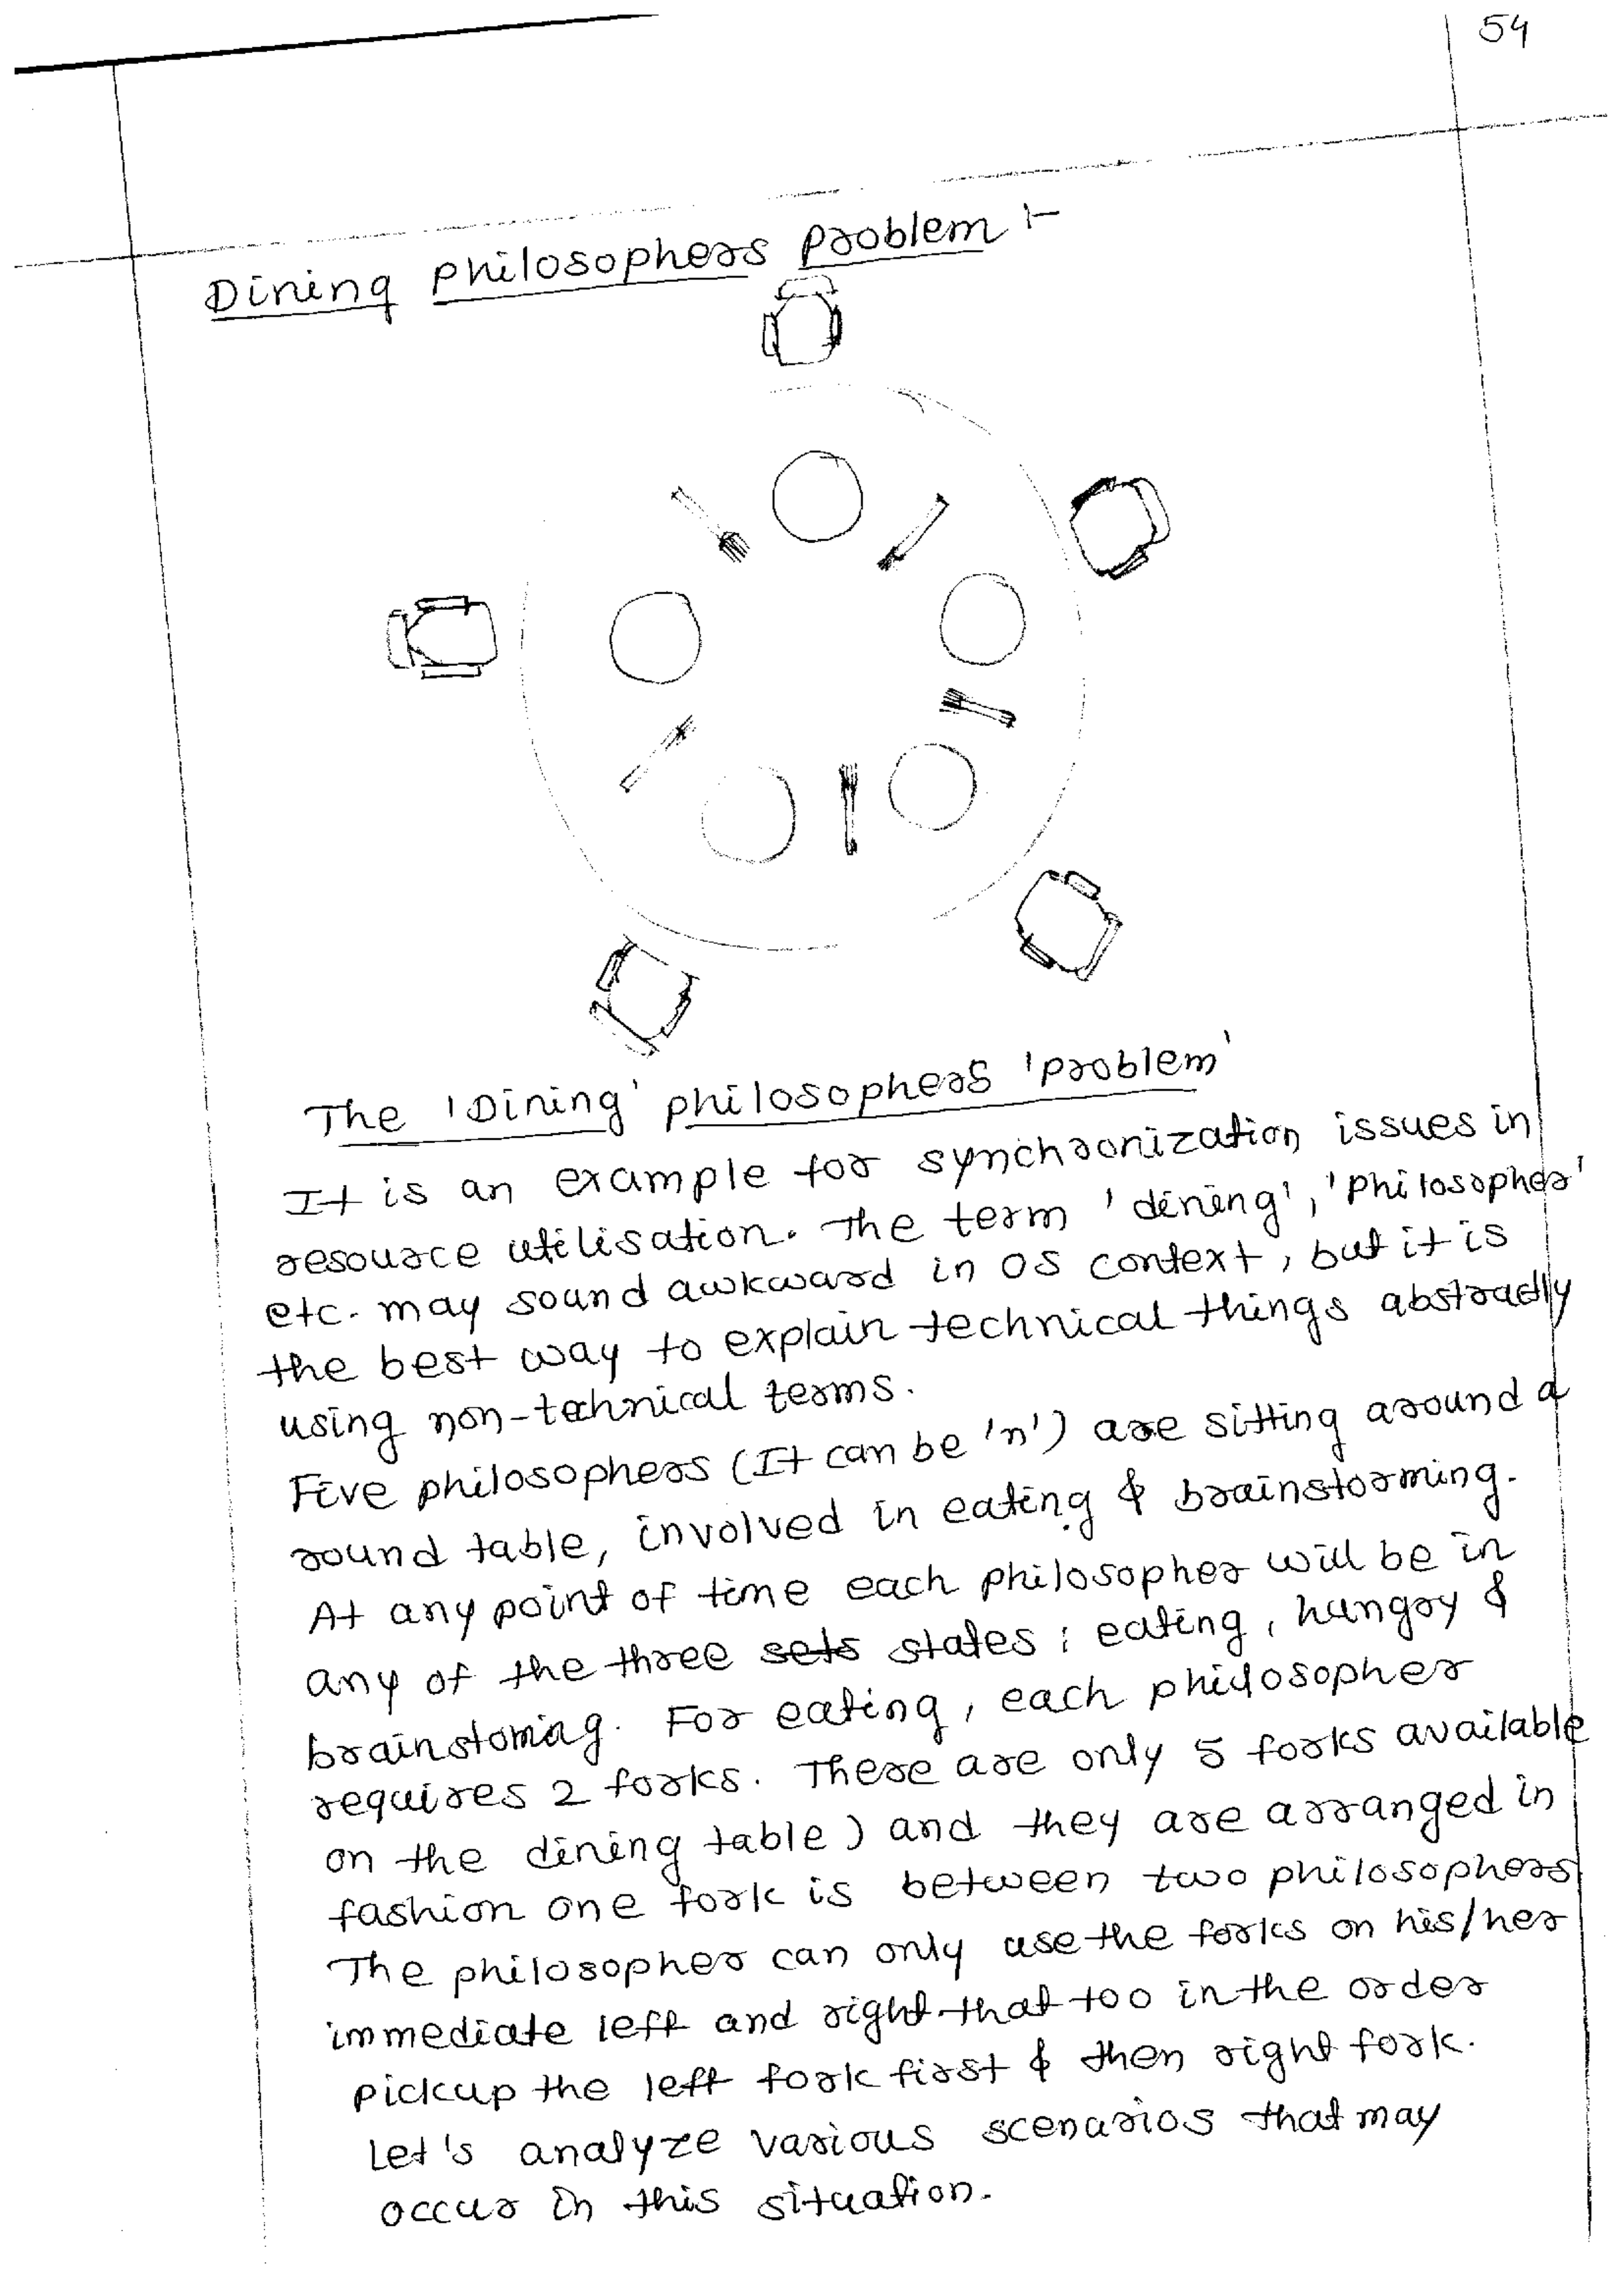 54
Dining philosophers problem :-
The 'Dining' philosophers 'problem'
It is an example for synchronization issues in
resource utilisation. The term 'dining', 'Philosopher'
etc. may sound awkward in OS context, but it is
the best way to explain technical things abstractly
using non-technical terms.
Five philosophers (It can be 'n') are sitting around a
round table, involved in eating & brainstorming.
At any point of time each philosopher will be in
any of the three sets states: eating, hungry &
brainstoming. For eating, each philosopher
requires 2 forks. There are only 5 forks available
on the dining table) and they are arranged in
fashion one fork is between two philosophers
The philosopher can only use the forks on his/her
immediate left and right that too in the order
pickup the left fork first & then right fork.
Let's analyze various scenarios that may
occur in this situation.